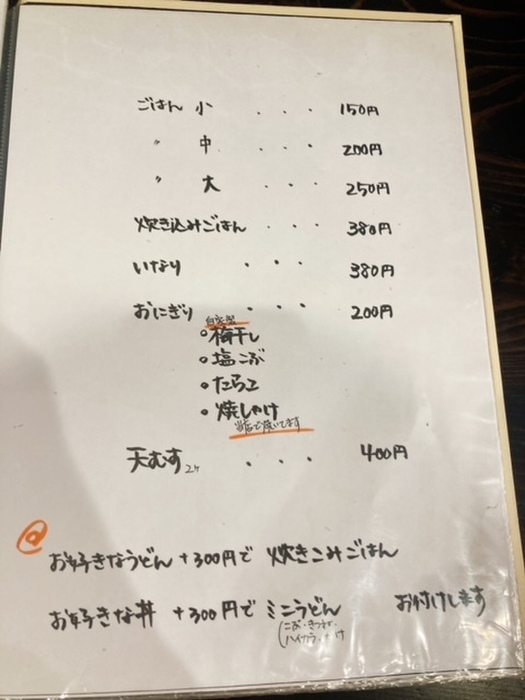 ごはん 小 ・・・ 150円
〃 中 ・・・ 200円
〃 大 ・・・ 250円
炊き込みごはん ・・・ 380円
いなり ・・・ 380円
おにぎり ・・・ 200円
自家製
・梅干し
・塩こぶ
・たらこ
・焼しゃけ
当店で焼いてます
天むす 2ヶ ・・・ 400円
@
お好きなうどん +300円で 炊きこみごはん
お好きな丼 +300円で ミニうどん お付けします
(こぶ・きつね・
ハイカラ・